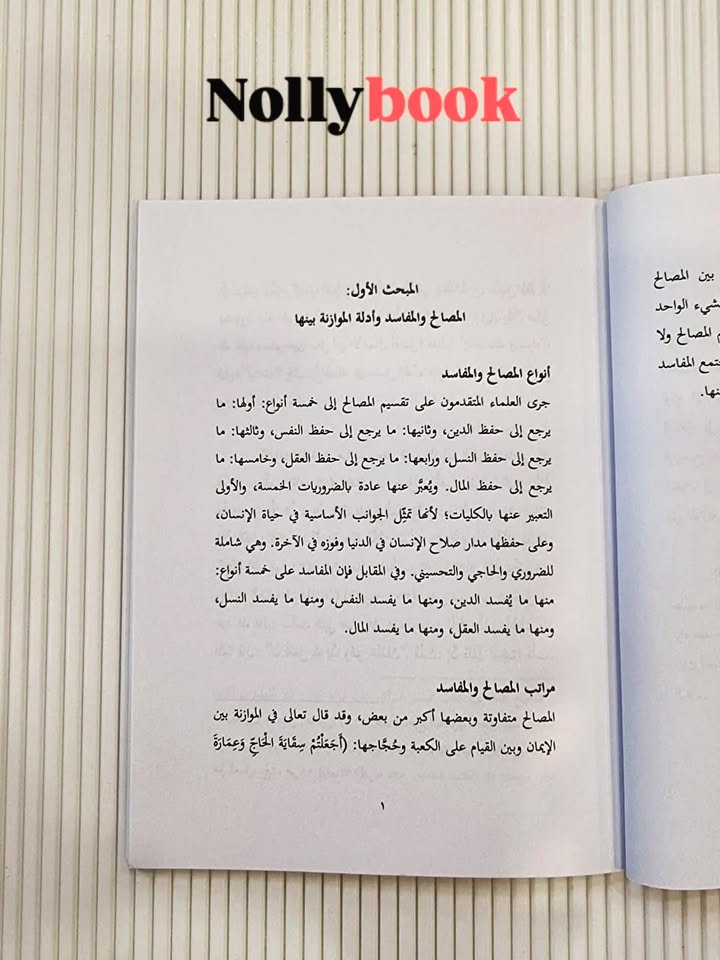 Nollybook
بين المصالح
الواحد
المصالح ولا
المفاسد
المبحث الأول:
المصالح والمفاسد وأدلة الموازنة بينها
أنواع المصالح والمفاسد
جرى العلماء المتقدمون على تقسيم المصالح إلى خمسة أنواع: أولها: ما
يرجع إلى حفظ الدين، وثانيها: ما يرجع إلى حفظ النفس، وثالثها: ما
يرجع إلى حفظ النسل، ورابعها: ما يرجع إلى حفظ العقل، وخامسها: ما
يرجع إلى حفظ المال. ويُعبَّر عنها عادة بالضروريات الخمسة، والأولى
التعبير عنها بالكليات؛ لأنها تمثِّل الجوانب الأساسية في حياة الإنسان،
وعلى حفظها مدار صلاح الإنسان في الدنيا وفوزه في الآخرة. وهي شاملة
للضروري والحاجي والتحسيني. وفي المقابل فإن المفاسد على خمسة أنواع:
منها ما يُفسد الدين، ومنها ما يفسد النفس، ومنها ما يفسد النسل،
ومنها ما يفسد العقل، ومنها ما يفسد المال.
مراتب المصالح والمفاسد
المصالح متفاوتة وبعضها أكبر من بعض، وقد قال تعالى في الموازنة بين
الإيمان وبين القيام على الكعبة وحُجَّاجها: (أَجَعَلْتُمْ سِقَايَةَ الْحَاجِّ وَعِمَارَةَ
١